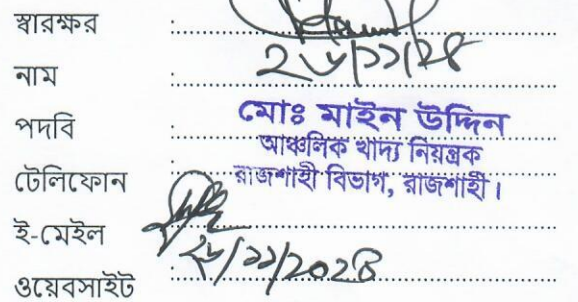 স্বারক্ষর :
২৬/১১/২৪
নাম :
পদবি : মোঃ মাইন উদ্দিন
আঞ্চলিক খাদ্য নিয়ন্ত্রক
টেলিফোন : রাজশাহী বিভাগ, রাজশাহী।
ই-মেইল
২৬/১১/২০২৪
ওয়েবসাইট